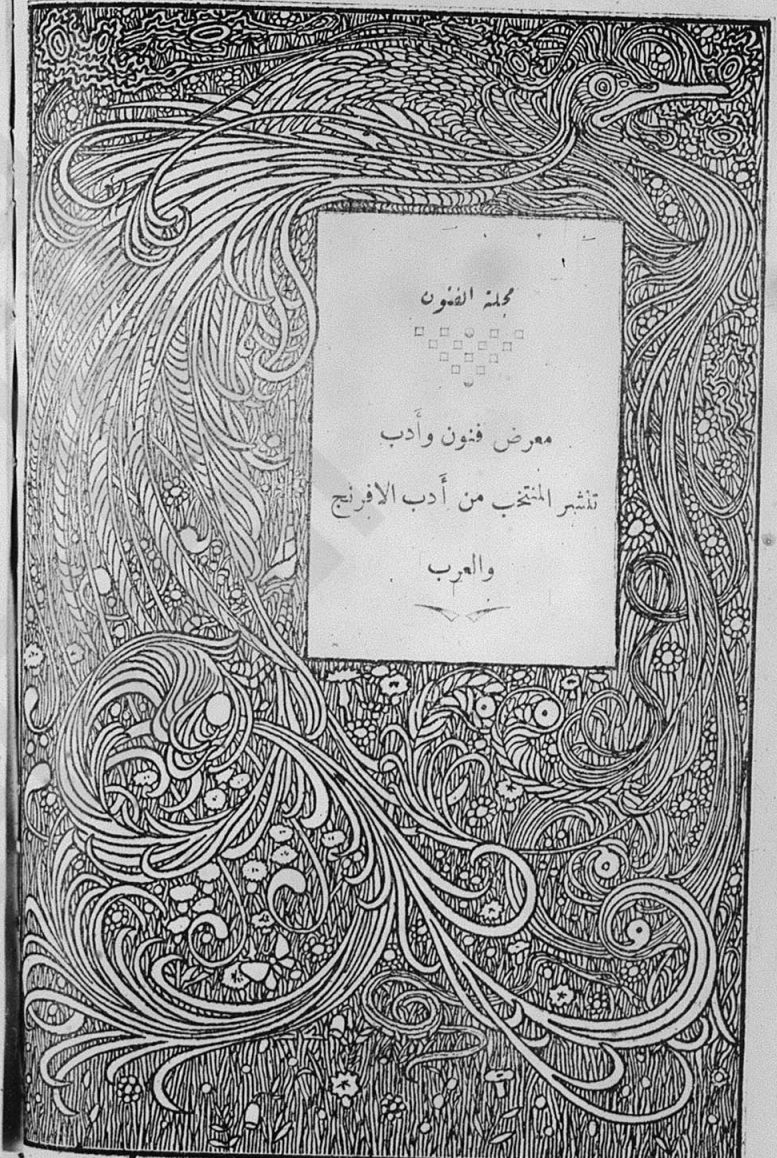 مجلة الفنون
معرض فنون وأدب
تنشر المنتخب من أدب الافرنج
والعرب